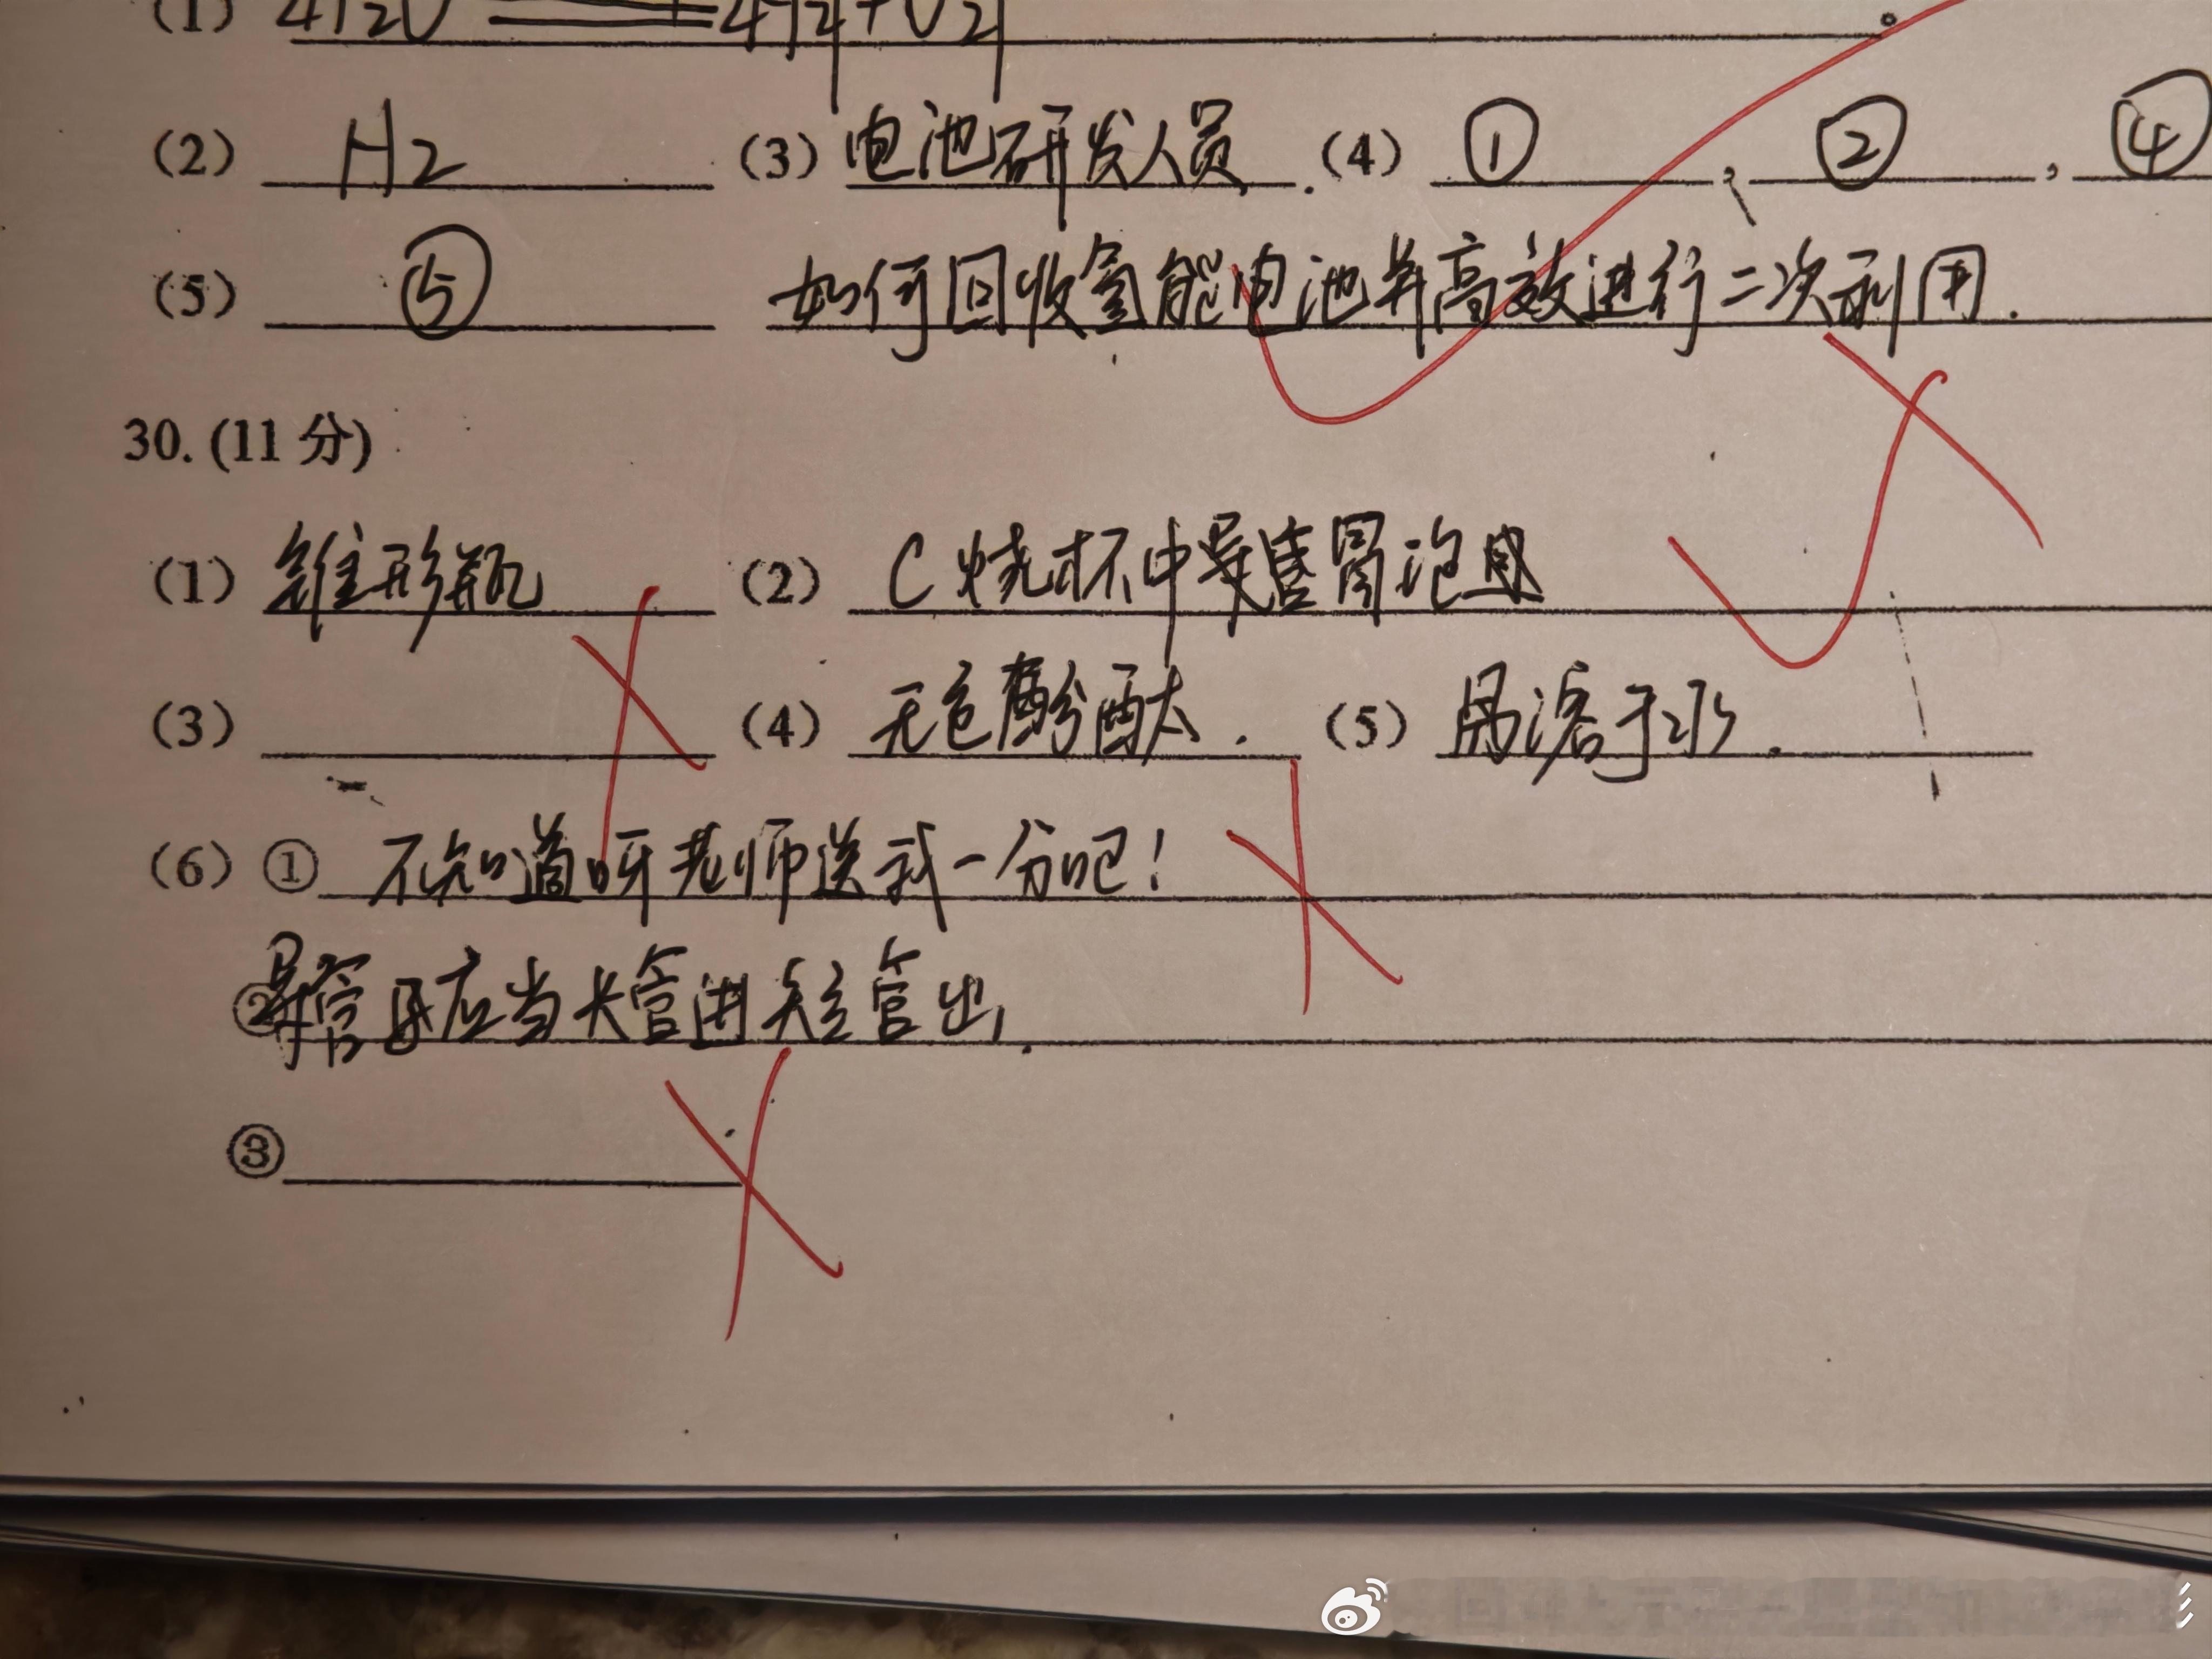 (2) H2 (3) 电池研发人员 . (4) ① , ② , ④
(5) ⑤ 如何回收氢能电池并高效进行二次利用.
30. (11 分)
(1) 锥形瓶 (2) C 烧杯中导管冒泡
(3) (4) 无色酚酞. (5) 易溶于水.
(6) ① 不知道呀老师送我一分吧!
② 导管 应当长管进短管出.
③